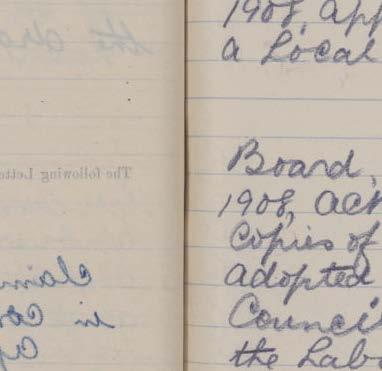 the dra
The following Lette
claim
in Con
1908, app
a Local
Board,
1908, ack
Copies of
adopted
Council
the Labo